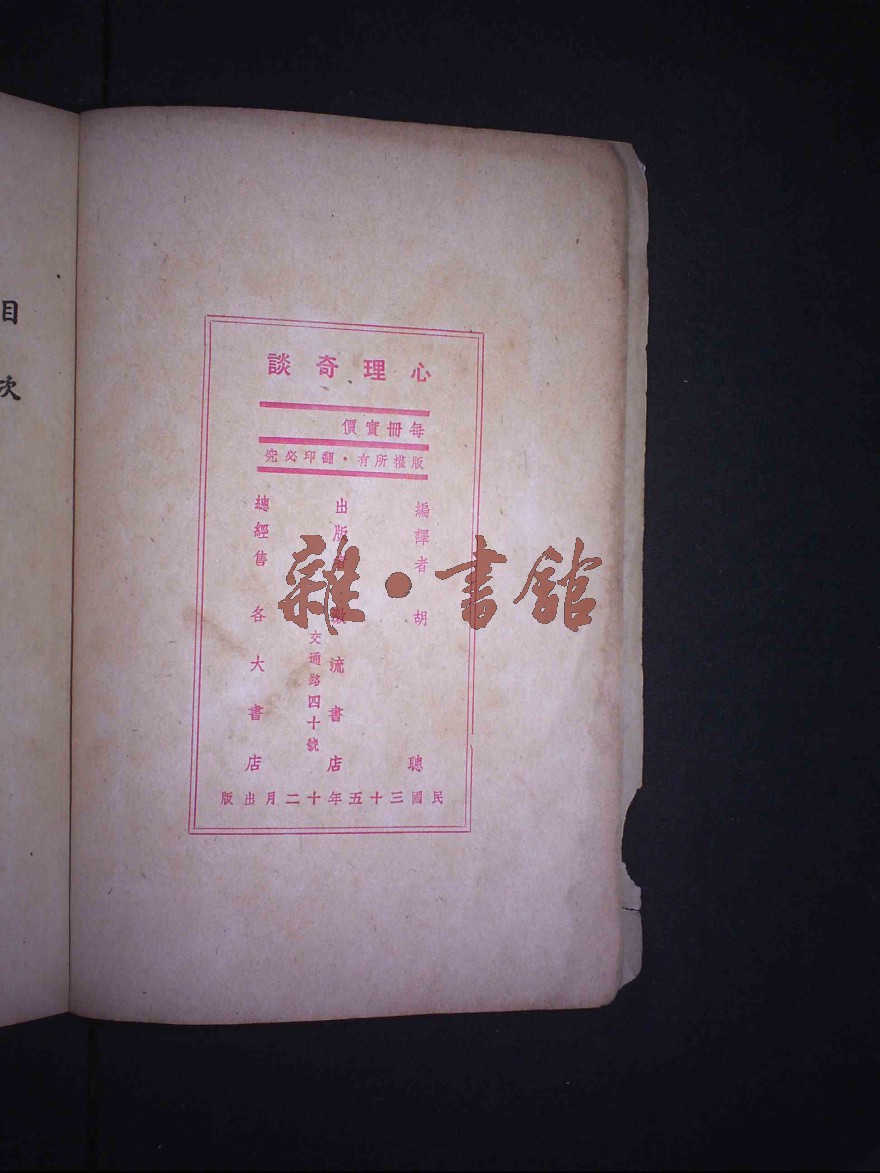 心理奇談
每冊實價
版權所有·翻印必究
編譯者 胡聰
出版者 激流書店
交通路四十號
總經售 各大書店
民國三十五年十二月出版
目次
雜·書舘